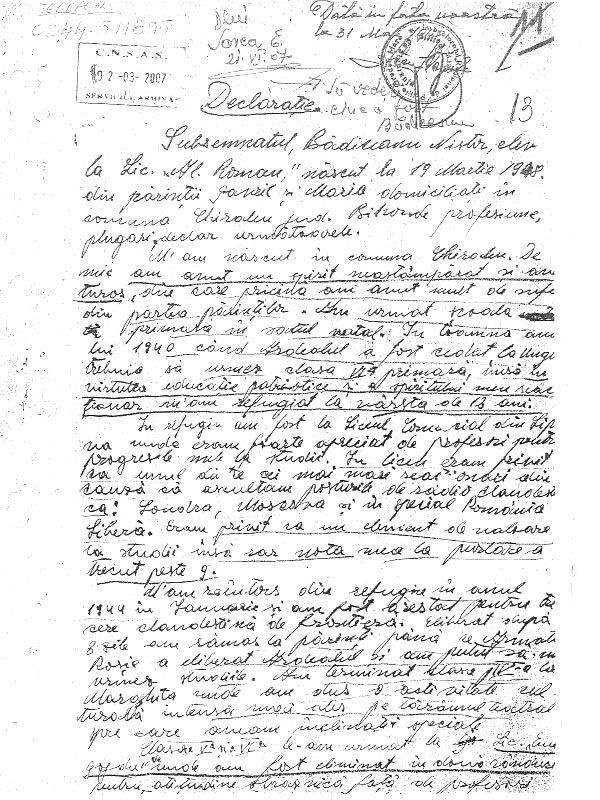 TELEFON
C.N.S.A.S.
02-03-2007
SERVICIUL ARHIVA
Dlui
Sorea E.
21.VI.07
Dată în fața noastră
la 31 Ma
Să vedem
cine a fost
13
Declarație
Subsemnatul, Bădiceanu Nistor, elev
la Lic. „Al. Roman," născut la 19 Martie 1928.
din părinții Gavril și Maria domiciliați în
comuna Chiraleu jud. Bihor de profesiune,
plugari, declar următoarele.
M'am născut în comuna Chiraleu. De
mic am avut un spirit neastâmpărat și aven
turos, din care pricină am avut mult de suferit
din partea părinților. Am urmat școala
primară în satul natal. În toamna anu
lui 1940 când Ardealul a fost cedat la unguri
trebuia să urmez clasa VI-a primară, însă în
virtutea educației patriotice și a spiritului meu reac
ționar m'am refugiat la vârsta de 13 ani.
În refugiu am fost la Liceul Comercial din Lipo
va unde eram foarte apreciat de profesori pentru
progresele mele la studii. În liceu eram privit
ca unul dintre cei mai mari reacționari din
cauză că ascultam posturile de radio clandesti
ne: Londra, Moscova și în special România
Liberă. Eram privit ca un element de valoare
la studii însă rar nota mea la purtare a
trecut peste 9.
M'am reîntors din refugiu în anul
1944 în Januarie și am fost arestat pentru tre
cere clandestină de frontieră. Eliberat după
8 zile am rămas la părinți până ce Armata
Roșie a eliberat Ardealul și am putut să-mi
urmez studiile. Am terminat clasa IV-a la
Marghita unde am dus o activitate cul
turală intensă mai ales pe tărâmul teatral
pre care aveam înclinații speciale.
Clasele V-a și VI-a le-am urmat la Lic. Em.
Gojdu unde am fost eliminat în două rânduri
pentru atitudine obraznică față de profesori